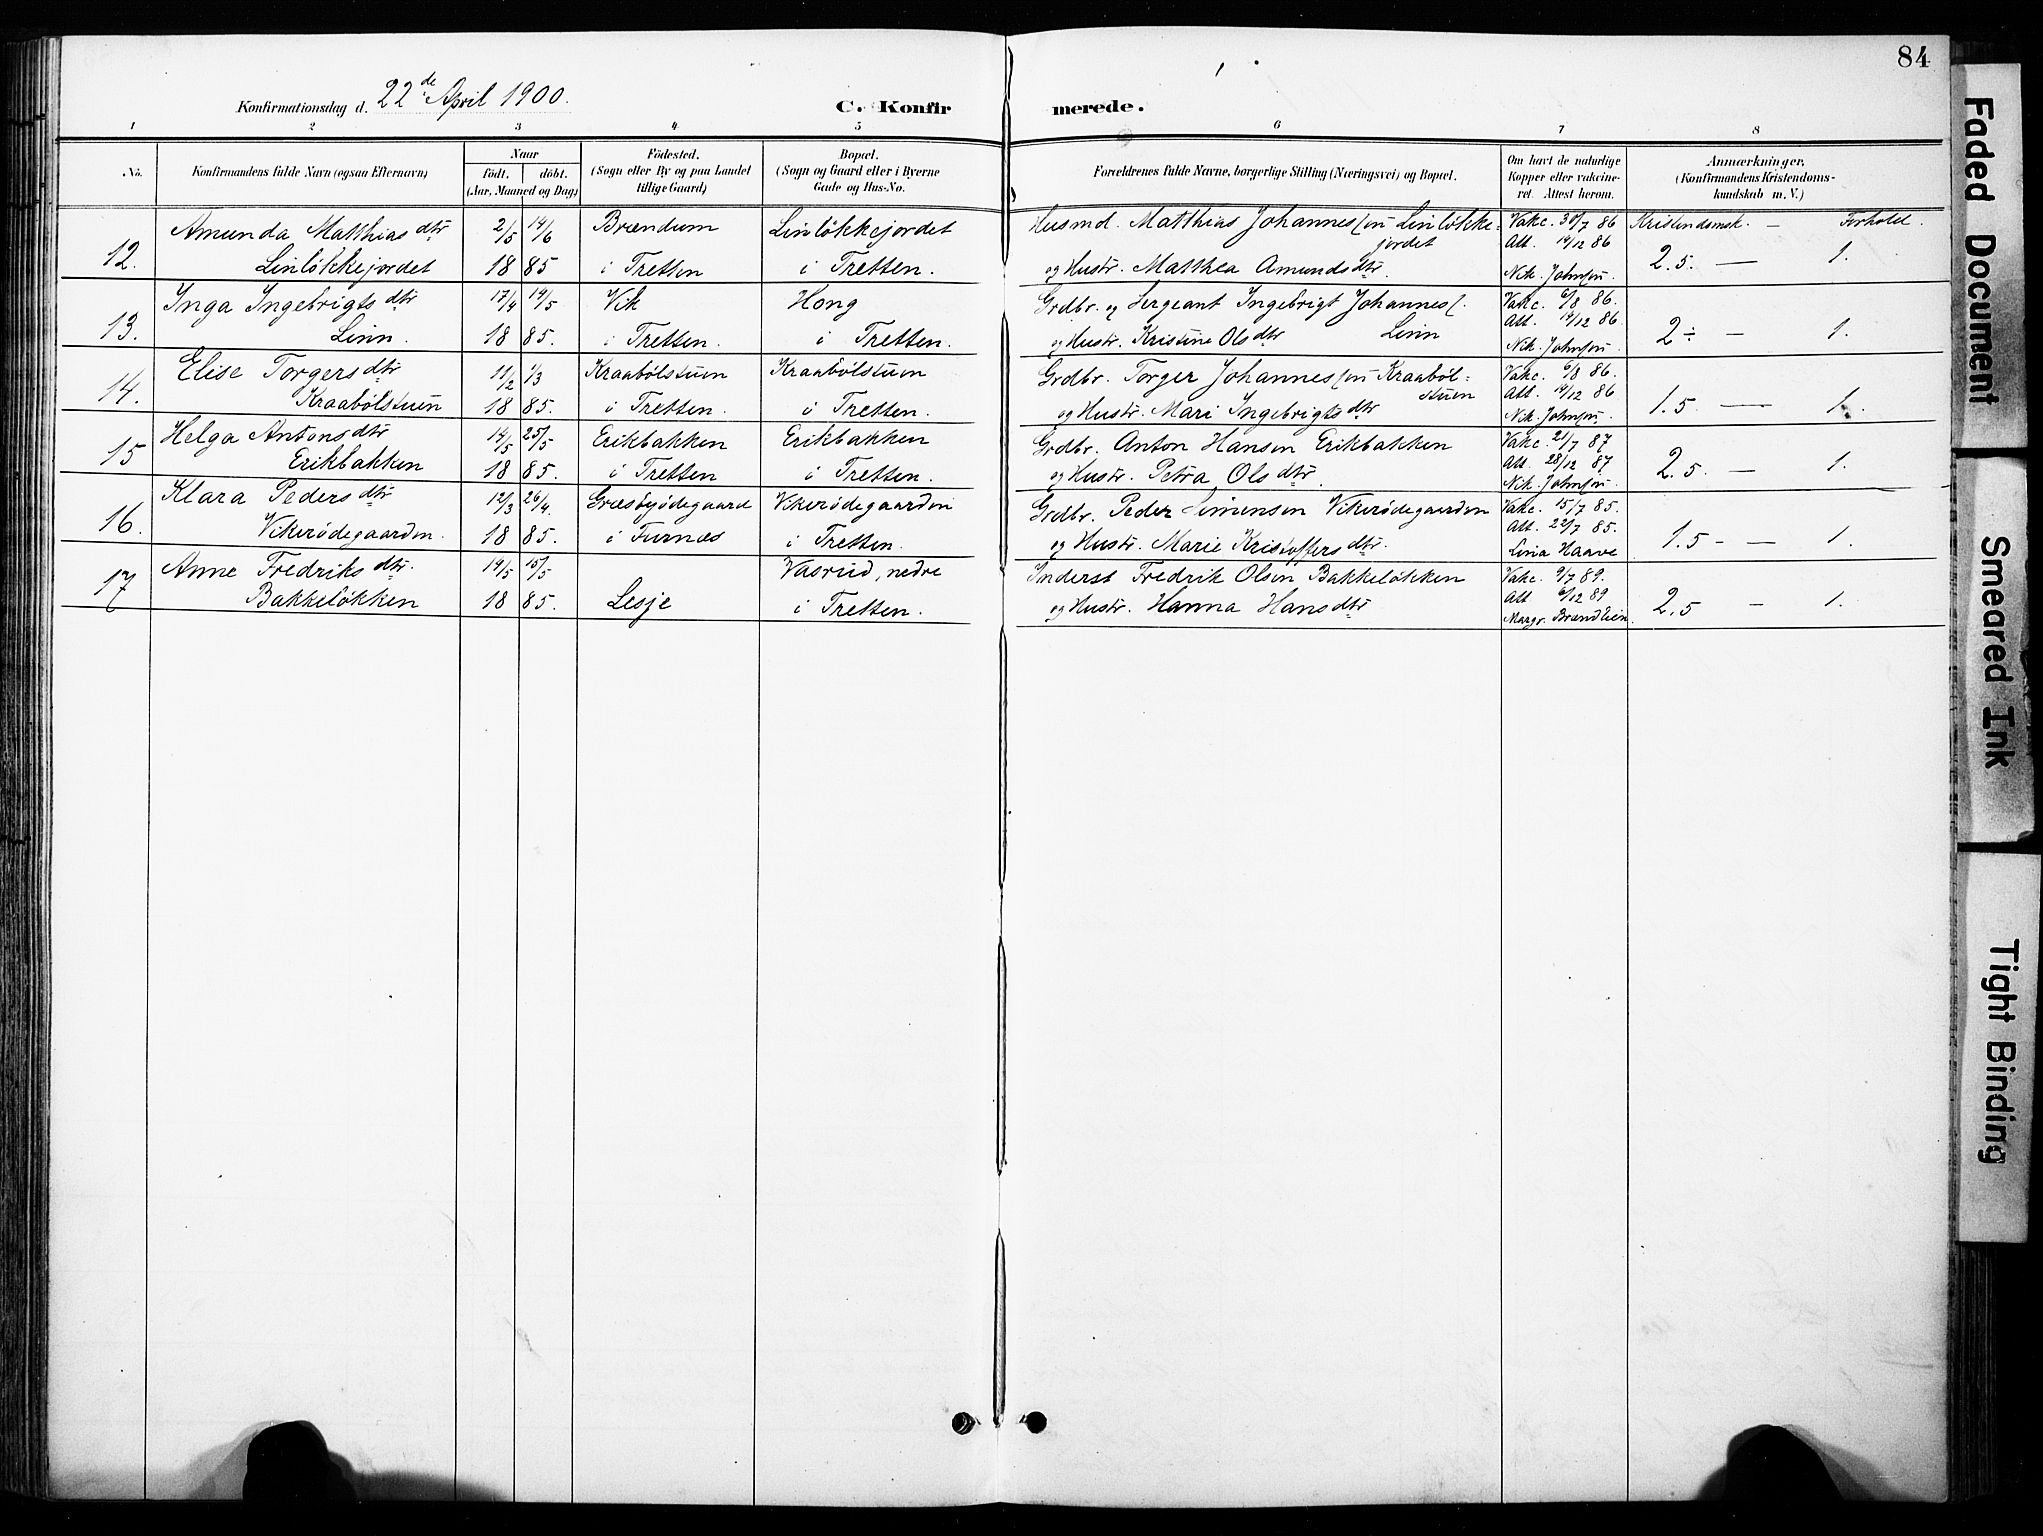 84
Konfirmationsdag d. 22de April 1900.
C. Konfirmerede.
1 2 3 4 5 6 7 8
No. Konfirmandens fulde Navn (ogsaa Efternavn) Naar født. døbt. (Aar, Maaned og Dag) Fødested. (Sogn eller By og paa Landet tillige Gaard) Bopæl. (Sogn og Gaard eller i Byerne Gade og Hus-No. Forældrenes fulde Navne, borgerlige Stilling (Næringsvei) og Bopæl. Om havt de naturlige Kopper eller vakcineret. Attest herom. Anmærkninger, (Konfirmandens Kristendomskundskab m. V.)
Amunda Matthiasdtr 2/5 14/6 Brændum Linløkkejordet Husmd. Matthias Johannessen Linløkkejordet Vakc. 30/7 86 Kristendomsk. — Forhold.
12. Linløkkejordet 18 85 i Tretten i Tretten. og Hustr. Matthea Amundsdtr. Att. 14/12 86 Nik. Johnsen. 2.5. — 1.
Inga Ingebrigtsdtr 17/4 14/5 Vik Hong Grdbr. og Sergeant Ingebrigt Johanness. Vakc. 6/8 86.
13. Linn. 18 85. i Tretten. i Tretten. og Hustr. Kristine Olsdtr Linn Att. 14/12 86 Nik. Johnsen. 2÷ — 1.
Elise Torgersdtr 11/2 1/3 Kraabølstuen Kraabølstuen Grdbr. Torger Johannessen Kraabølstuen Vakc. 6/8 86.
14. Kraabølstuen 18 85. i Tretten. i Tretten. og Hustr. Mari Ingebrigtsdtr Att. 14/12 86 Nik. Johnsen. 1.5 — 1.
Helga Antonsdtr 14/5 25/5 Erikbakken Erikbakken Grdbr. Anton Hansen Erikbakken Vakc. 21/7 87
15 Erikbakken 18 85. i Tretten i Tretten. og Hustr. Petra Olsdtr. Att. 28/12 87. Nik. Johnsen. 2.5. — 1.
Klara Pedersdtr 12/3 26/4 Græsbyødegaard Vikerødegaarden Grdbr. Peder Simensen Vikerødegaarden Vakc. 15/7 85.
16. Vikerødegaarden. 18 85. i Furnæs i Tretten. og Hustr. Marie Kristoffersdtr. Att. 22/7 85. Lina Haave 1.5 - — 1.
Anne Fredriksdtr. 14/5 15/5 Vasrud, nedre Inderst Fredrik Olsen Bakkeløkken Vakc. 9/7 89.
17 Bakkeløkken 18 85. Lesje i Tretten. og Hustr. Hanna Hansdtr Att 6/12 89 Margr. Brændlien. 2.5 — 1.
Faded Document
Smeared Ink
Tight Binding